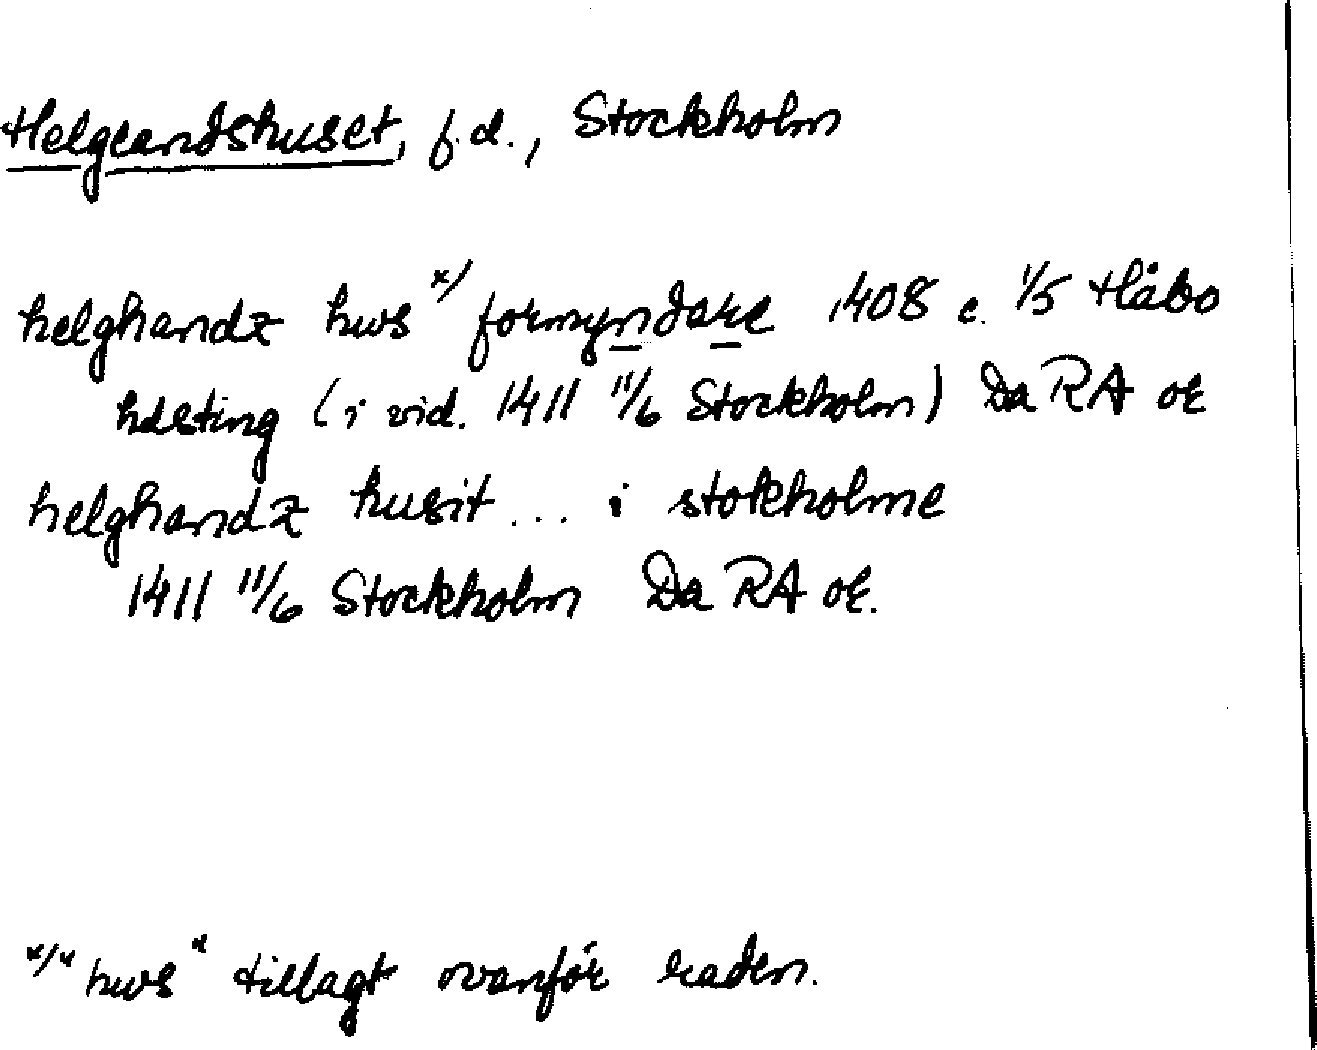 Helgeandshuset, f.d., Stockholm
helghandz hws x/ formyndare 1408 e. 1/5 Håbo
hdsting (i vid. 1411 11/6 Stockholm) Da RA or
helghandz husit ... i stokholme
1411 11/6 Stockholm Da RA or.
x/ "hws" tillagt ovanför raden.